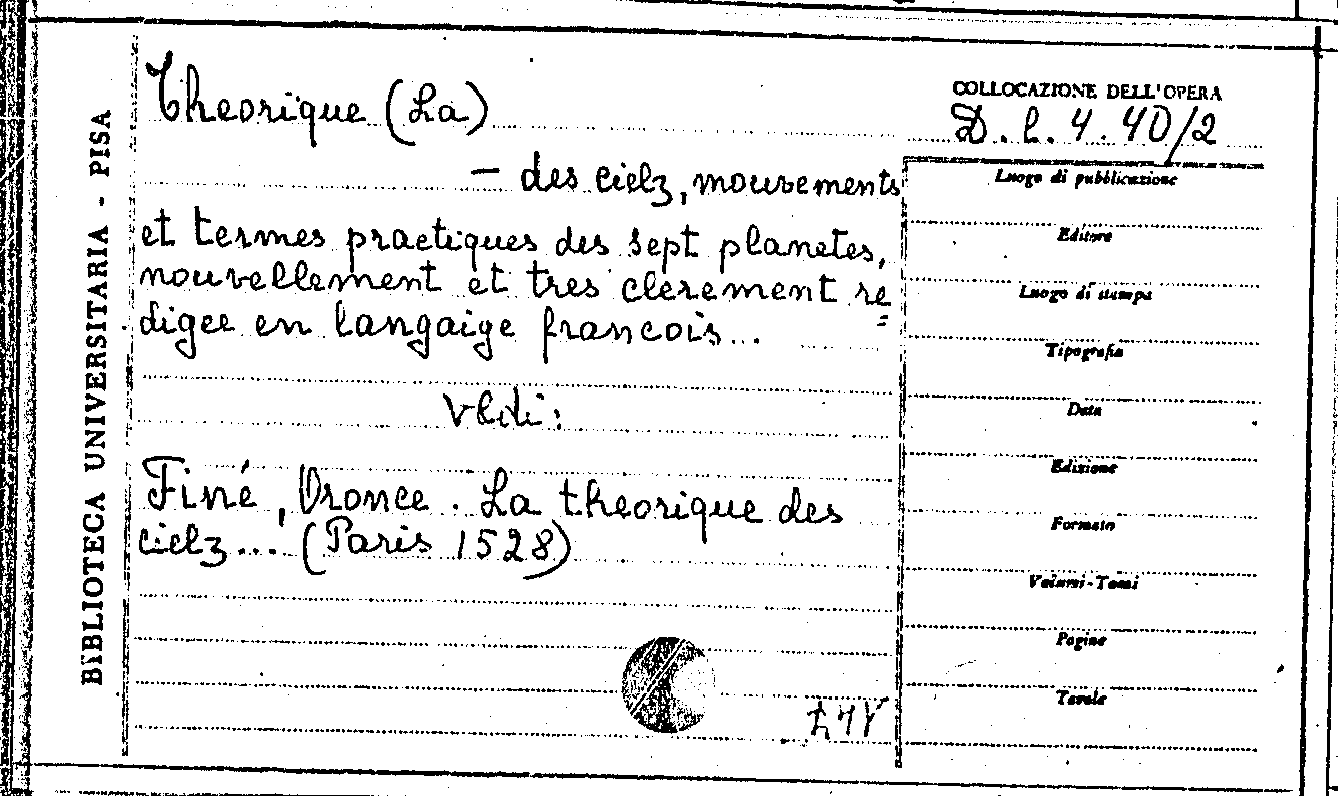 BIBLIOTECA UNIVERSITARIA - PISA
Theorique (La)
COLLOCAZIONE DELL'OPERA
D. l. 4. 40/2
- des cielz, mouvements
et termes practiques des sept planetes,
nouvellement et tres clerement re=
digee en langaige francois...
Vedi:
Finé, Oronce. La theorique des
cielz... (Paris 1528)
Luogo di pubblicazione
Editore
Luogo di stampa
Tipografia
Data
Edizione
Formato
Volumi-Tomi
Pagine
Tavole